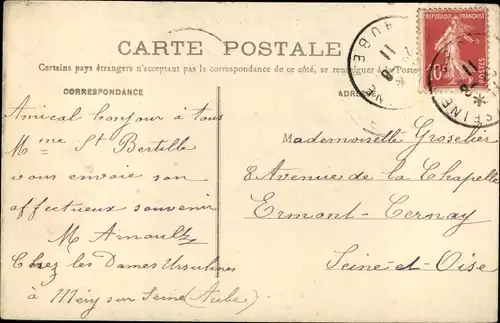 CARTE POSTALE
Certains pays étrangers n'acceptant pas la correspondance de ce côté, se renseigner à la Poste
CORRESPONDANCE
ADRESSE
Amical bonjour à tous
Mme St Bertille
vous envoie son
affectueux souvenir
M Arnault
Chez les Dames Ursulines
à Méry sur Seine (Aube)
Mademoiselle Groselier
8 Avenue de la Chapelle
Ermont-Cernay
Seine-et-Oise
REPUBLIQUE FRANÇAISE
POSTES
10c
AUBE
11
SEINE
11